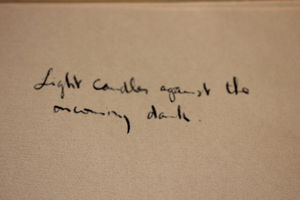 Light candles against the
oncoming dark.